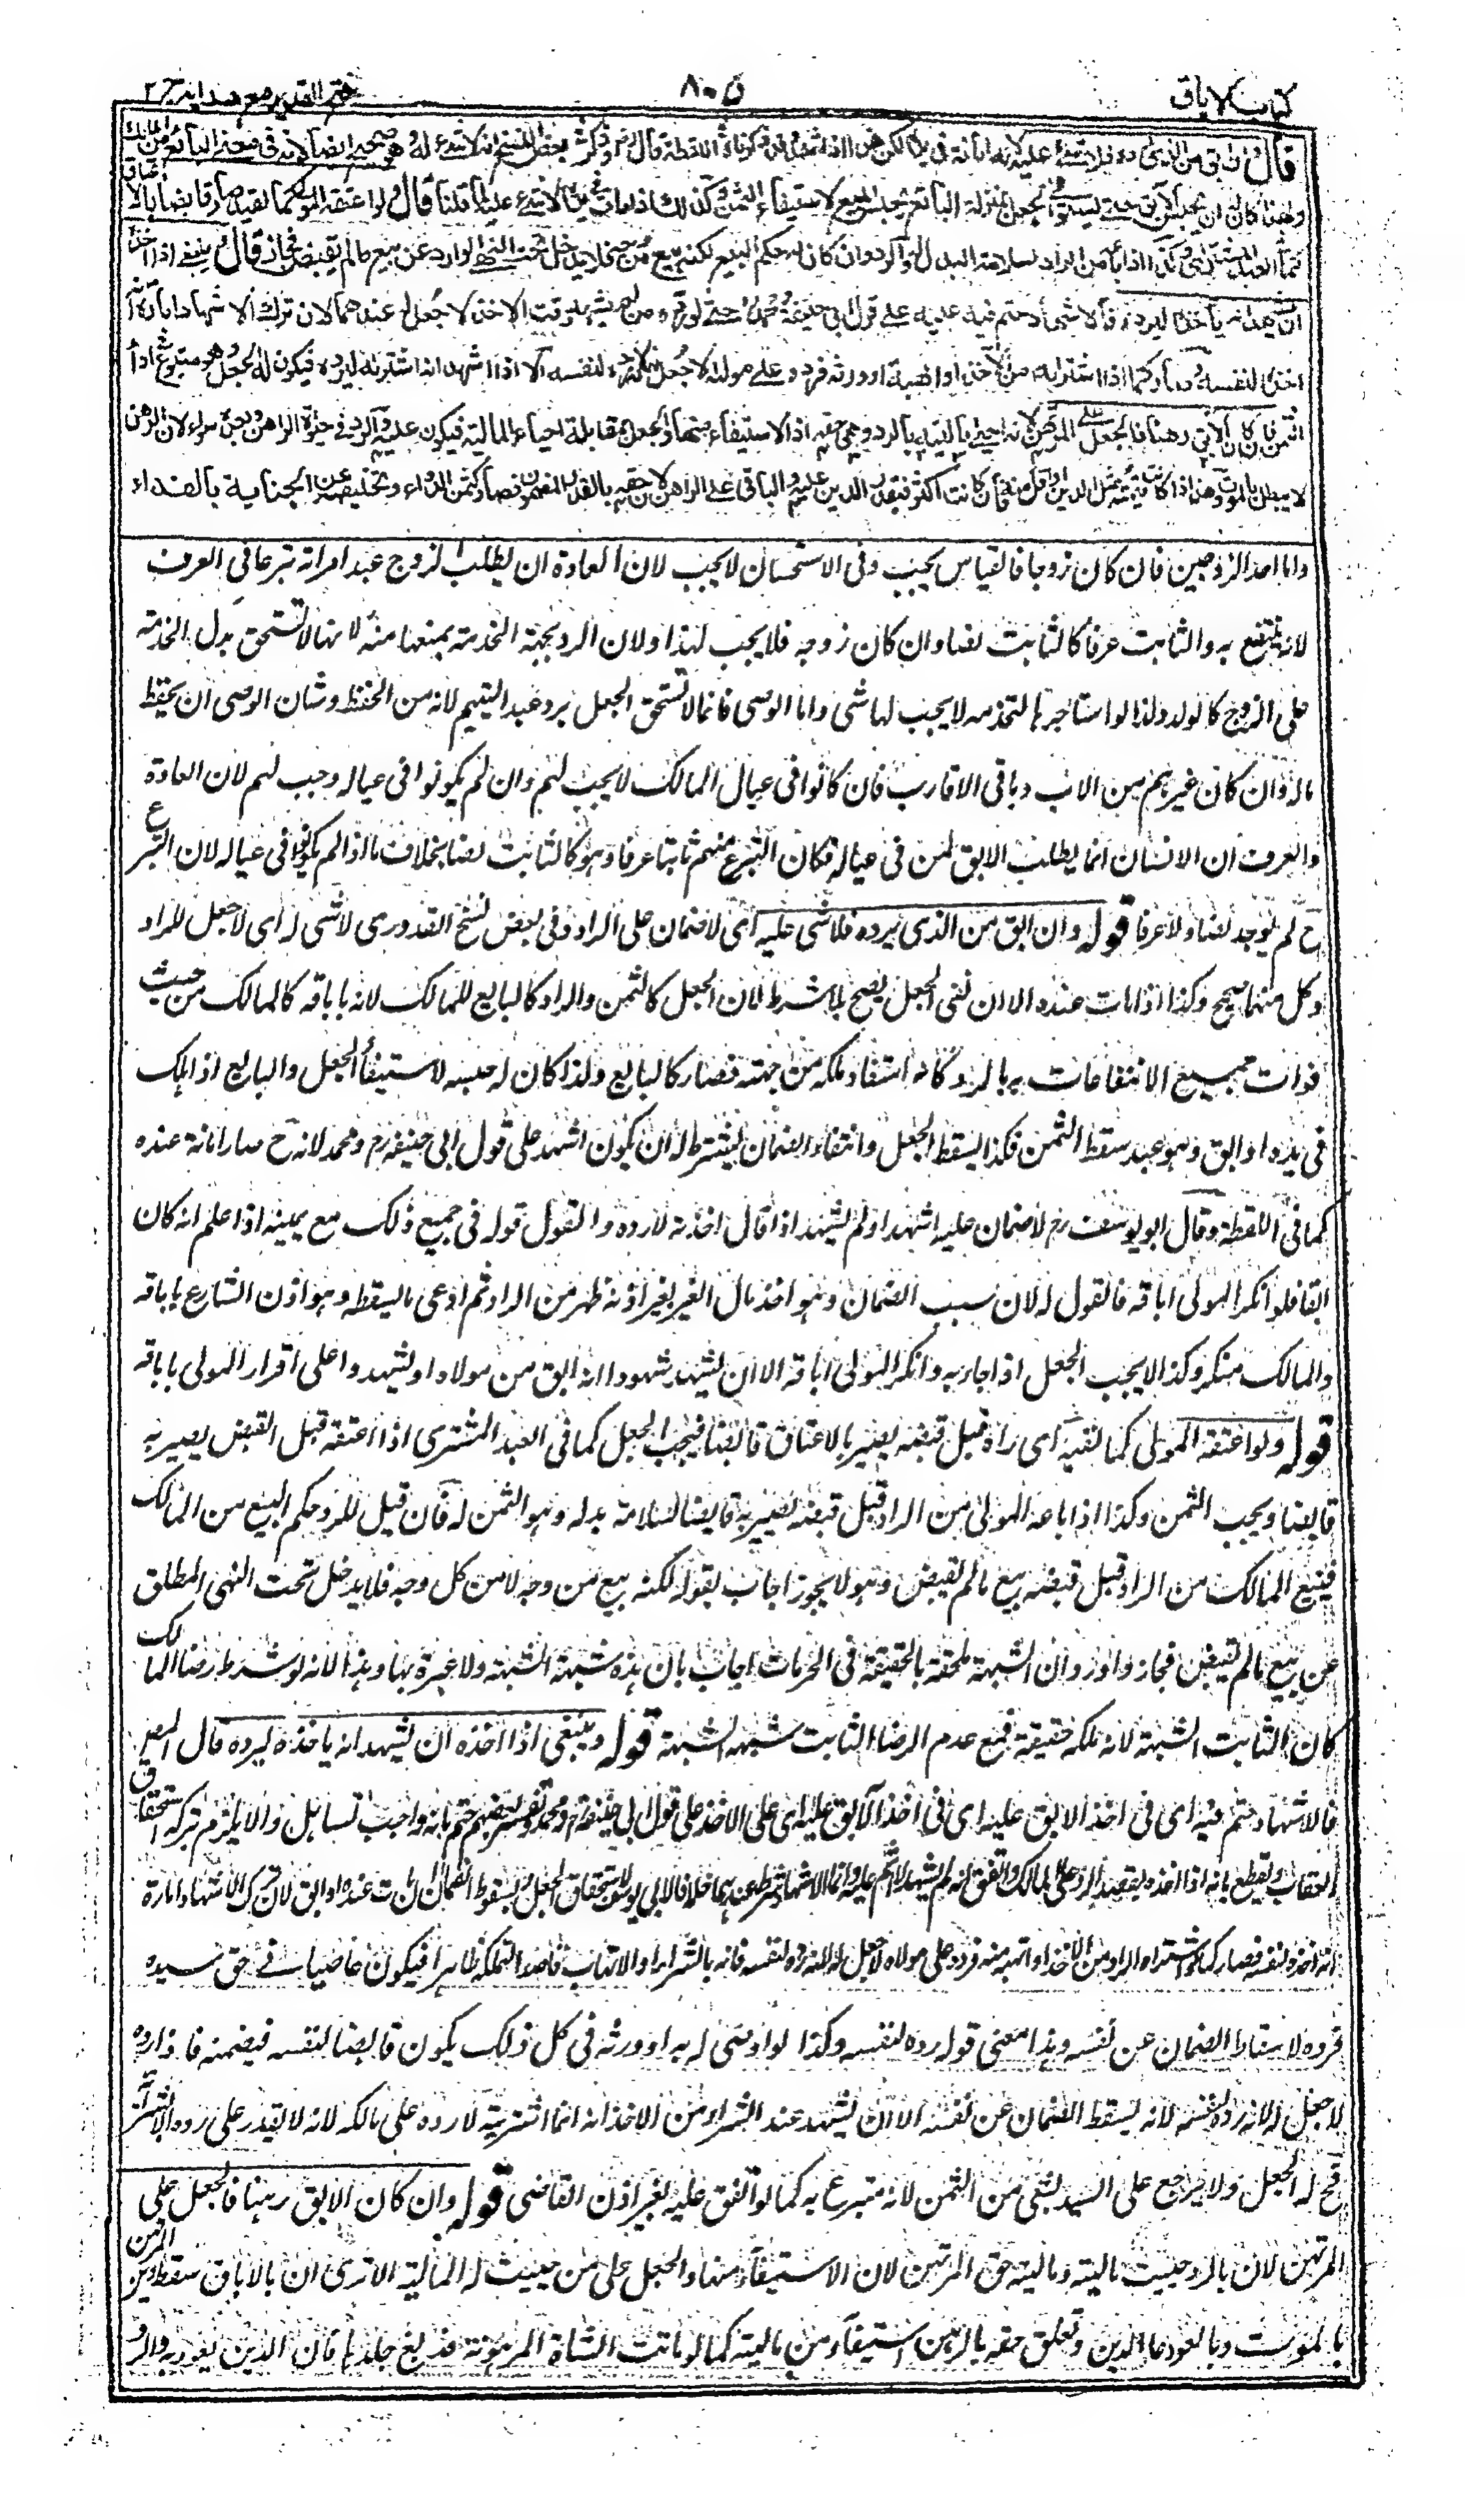 كتاب الاباق
٨٠٥
فتح القدير مع هداية ج ٢
قال وان ابق من الذى رده فلا شئ عليه لانه امانة فى يده لكن هذا اذا اشهد وقد ذكرناه فى اللقطة قال رض وذكر فى بعض النسخ انه لا شئ له وهو صحيح ايضا لانه فى معنى البائع من المالك
ولهذا كان له ان يحبس الآبق حتى يستوفى الجعل بمنزلة البائع يحبس المبيع لاستيفاء الثمن وكذلك اذا مات فى يده لا شئ عليه لما قلنا قال ولو اعتقه المولى كما لقيه صار قابضا بالاعتاق
كما فى العبد المشترى وكذا اذا باعه من الراد لسلامة البدل له والرد وان كان له حكم البيع لكنه بيع من وجه فلا يدخل تحت النهى الوارد عن بيع ما لم يقبض فجاز قال وينبغى اذا اخذه
ان يشهد انه يأخذه ليرده فالاشهاد حتم فيه عليه على قول ابى حنيفة ومحمد حتى لو رده من لم يشهد وقت الاخذ لا جعل له عندهما لان ترك الاشهاد امارة انه
اخذه لنفسه وصار كما اذا اشتراه من الآخذ او اتهبه او ورثه فرده على مولاه لا جعل له لانه رده لنفسه الا اذا اشهد انه اشتراه ليرده فيكون له الجعل وهو متبرع فى اداء
الثمن فان كان الآبق رهنا فالجعل على المرتهن لانه احيى ماليته بالرد وهى حقه اذ الاستيفاء منها والجعل بمقابلة احياء المالية فيكون عليه والرد فى حيوة الراهن وبعده سواء لان الرهن
لا يبطل بالموت وهذا اذا كانت قيمته مثل الدين او اقل منه فان كانت اكثر فبقدر الدين عليه والباقى على الراهن لان حقه بالقدر المضمون فصار كثمن الدواء وتخليصه عن الجناية بالفداء
واما احد الزوجين فان كان زوجا فالقياس يجب وفى الاستحسان لا يجب لان العادة ان يطلب الزوج عبد امراته تبرعا فى العرف
لانه ينتفع به والثابت عرفا كالثابت نصا وان كان زوجه فلا يجب لهذا ولان الرد بجهة الخدمة يمنعها منه لانها لا تستحق بدل الخدمة
على الزوج كالولد ولذا لو استاجرها لتخدمه لا يجب لها شى واما الوصى فانما لا تستحق الجعل برد عبد اليتيم لانه من الحفظ وشان الوصى ان يحفظ
ماله وان كان غيرهم من الاب وباقى الاقارب فان كانوا فى عيال المالك لا يجب لهم وان لم يكونوا فى عياله وجب لهم لان العادة
والعرف ان الانسان انما يطلب الابق لمن فى عياله فكان التبرع منهم ثابتا عرفا وهو كالثابت نصا بخلاف ما اذا لم يكونوا فى عياله لان التبرع
ح لم يوجد نصا ولا عرفا قوله وان ابق من الذى يرده فلا شى عليه اى لا ضمان على الراد وفى بعض نسخ القدورى لا شى له اى لا جعل للراد
وكل منها صحيح وكذا اذا مات عنده الا ان نفى الجعل يصح بلا شرط لان الجعل كالثمن والراد كالبايع للمالك لانه باباقه كالهالك من حيث
فوات جميع الانتفاعات به بالرد كانه استفاد ملكه من جهته فصار كالبايع ولذا كان له حبسه لاستيفاء الجعل والبايع اذ هلك
فى يده او ابق وهو عبد سقط الثمن فكذا يسقط الجعل وانتفاء الضمان يشترط له ان يكون اشهد على قول ابى حنيفه رح ومحمد لانه ح صار امانة عنده
كما فى اللقطة وقال ابو يوسف رح لا ضمان عليه اشهد او لم يشهد اذا قال اخذته لارده والقول قوله فى جميع ذلك مع يمينه اذا علم انه كان
ابقا فلو انكر المولى اباقه فالقول له لان سبب الضمان وهو اخذ مال الغير بغير اذنه ظهر من الراد ثم ادعى ما يسقطه وهو اذن الشارع باباقه
والمالك منكر وكذا لا يجب الجعل اذا جاء به وانكر المولى اباقه الا ان يشهد شهود انه ابق من مولاه او يشهدوا على اقرار المولى باباقه
قوله ولو اعتقه المولى كما لقيه اى راه قبل قبضه يصير بالاعتاق قابضا فيجب الجعل كما فى العبد المشترى اذا اعتقه قبل القبض يصير به
قابضا ويجب الثمن وكذا اذا باعه المولى من الراد قبل قبضه يصير به قابضا لسلامة بدله وهو الثمن له فان قيل للرد حكم البيع من المالك
فبيع المالك من الراد قبل قبضه بيع ما لم يقبض وهو لا يجوز اجاب بقوله لكنه بيع من وجه لا من كل وجه فلا يدخل تحت النهى المطلق
عن بيع ما لم يقبض فجاز واورد ان الشبهة ملحقة بالحقيقة فى الحرمات اجاب بان هذه شبهة الشبهة ولا عبرة بها وهذا لانه لو شرط رضا المالك
كان الثابت الشبهة لانه ملكه حقيقة فمع عدم الرضا الثابت شبهة الشبهة قوله وينبغى اذا اخذه ان يشهد انه ياخذه ليرده قال المص
فالاشهاد حتم فيه اى فى اخذ الابق عليه اى على الاخذ على قول ابى حنيفة رح ومحمد وتفسير بعضهم حتم بانه واجب تساهل والا يلزم بتركه استحقاق
العقاب ويقطع بانه اذا اخذه بقصد الرد على المالك واتفق انه لم يشهد لا اثم عليه وانما الاشهاد شرط عندهما خلافا لابى يوسف لاستحقاق الجعل وسقوط الضمان ان مات عنده او ابق لان ترك الاشهاد امارة
انه اخذه لنفسه فصار كما لو اشتراه الراد من الاخذ او اتهبه منه فرده على مولاه لا جعل له لانه رده لنفسه فانه بالشراء او الاتهاب قاصد التملك ظاهرا فيكون عاصيا فى حق سيده
فرده لاسقاط الضمان عن نفسه وهذا معنى قوله رده لنفسه وكذا لو اوصى له به او ورثه فى كل ذلك يكون قابضا لنفسه فيضمنه فاذا رده
لا جعل له لانه رده لنفسه لانه يسقط الضمان عن نفسه الا ان يشهد عند الشراء من الاخذ انه انما اشتريته لارده على مالكه لانه لا يقدر على رده الا بشرائه
فح له الجعل ولا يرجع على السيد بشى من الثمن لانه متبرع به كما لو اتفق عليه بغير اذن القاضى قوله وان كان الابق رهنا فالجعل على
المرتهن لان بالرد حييت ماليته وماليته حق المرتهن لان الاستيفاء منها والجعل على من حييت له المالية الا ترى ان بالاباق سقط دين المرتهن
بالموت وبالعود عاد الدين وتعلق حقه بالرهن استيفاء من ماليته كما لو ماتت الشاة المرهونة فدبغ جلدها فان الدين يعود به والرد